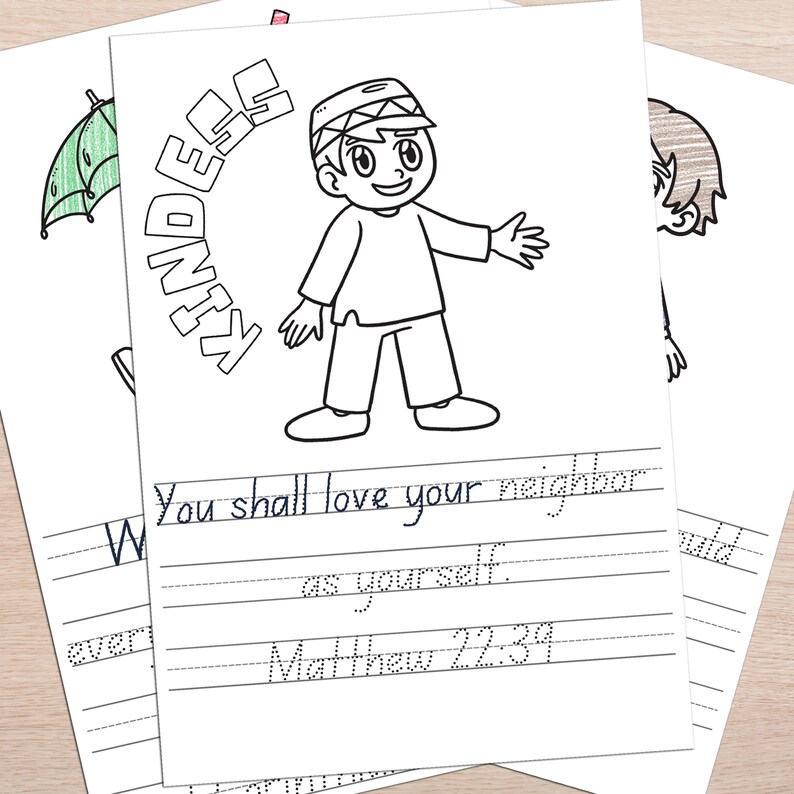 KINDESS
You shall love your neighbor
as yourself.
Matthew 22:39
W
uld
every